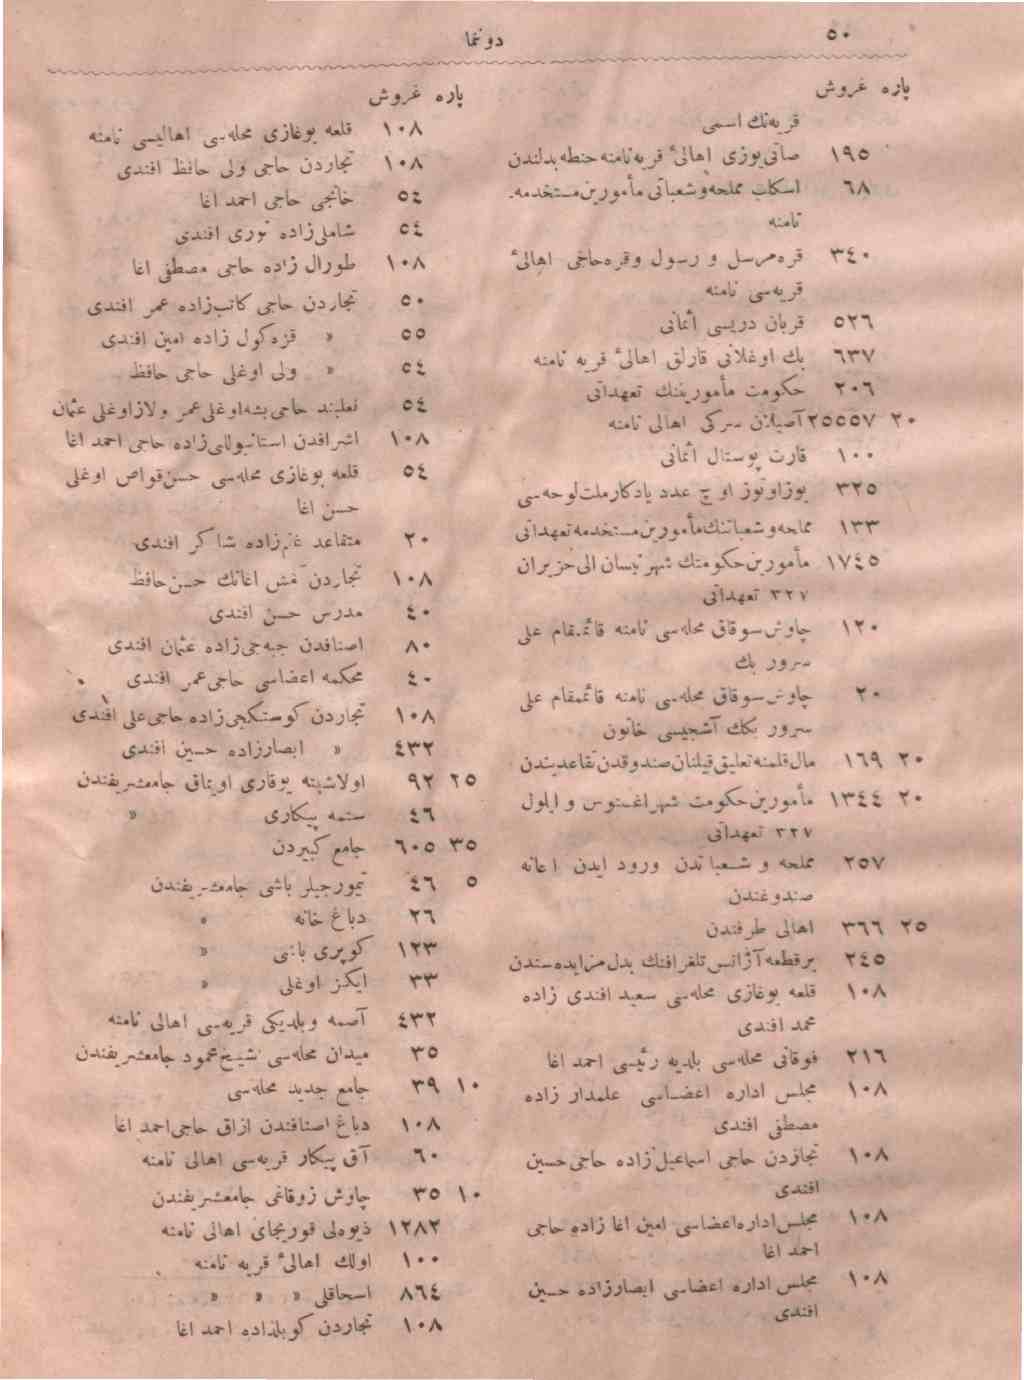 ٥٠
دوننما
پاره غروش
قریه‌نك اسمی
١٩٥ صاتی‌یوزی اهالیٔ قریه‌نامنه حنطه بدلندن
٦٨ اسکات مملحه‌وشعباتی مأمورین مستخدمه
نامنه
٣٤٠ قره‌مرسل و رسول وقره‌حاجی اهالیٔ
قریه‌سی نامنه
٥٢٦ قربان دریسی اثمانی
٦٣٧ بك اوغلانی قارلق اهالیٔ قریه نامنه
٢٠٦ حکومت مأمورینك تعهداتی
٢٠ ٢٥٥٥٧ سرکی اهالی نامنه
١٠٠ قارت پوستال اثمانی
٣٢٥ یوزاوتوز اوچ عدد یادکارملت‌لوحه‌سی
١٣٣ مملحه‌وشعباتنك‌مأمورین‌مستخدمه‌تعهداتی
١٧٤٥ مأمورین‌حکومتك شهر نیسان الی حزیران
٣٢٧ تعهداتی
١٢٠ چاوش‌سوقاق محله‌سی نامنه قائمقام علی
سرور بك
٢٠ چاوش‌سوقاق محله‌سی نامنه قائمقام علی
سرور بکك آشجیسی خاتون
٢٠ ١٦٩ مال‌قلمنه تعلیق‌قیلنان‌صندوقدن‌تقاعدیندن
٢٠ ١٣٤٤ مأمورین‌حکومت شهراغستوس و ایلول
٣٢٧ تعهداتی
٢٥٧ مملحه و شعباتدن ورود ایدن اعانه
صندوغندن
٢٥ ٣٦٦ اهالی طرفندن
٢٤٥ برقطعه آژانس تلغرافنك بدل‌مزایده‌سندن
١٠٨ قلعه بوغازی محله‌سی سعید افندی زاده
محمد افندی
٢١٦ فوقانی محله‌سی بلدیه رئیسی احمد اغا
١٠٨ مجلس اداره اعضاسی علمدار زاده
مصطفی افندی
١٠٨ تجاردن حاجی اسماعیل‌زاده حاجی‌حسین
افندی
١٠٨ مجلس‌اداره‌اعضاسی امین اغا زاده حاجی
احمد اغا
١٠٨ مجلس اداره اعضاسی ابصارزاده حسین
افندی
پاره غروش
١٠٨ قلعه بوغازی محله‌سی اهالیسی نامنه
١٠٨ تجاردن حاجی ولی حافظ افندی
٥٤ خانجی حاجی احمد اغا
٥٤ شاملی‌زاده نوری افندی
١٠٨ طورال زاده حاجی مصطفی اغا
٥٠ تجاردن حاجی کاتب‌زاده عمر افندی
٥٥ « قزه‌کول زاده امین افندی
٥٤ « ولی اوغلی حاجی حافظ
٥٤ نعلبند حاجی‌بشه‌اوغلی‌عمر ولازاوغلی عثمان
١٠٨ اشرافدن استانبوللی‌زاده حاجی احمد اغا
٥٤ قلعه بوغازی محله‌سی حسن‌قواص اوغلی
حسن اغا
٢٠ متقاعد زاده شاکر افندی
١٠٨ تجاردن اغانك حسن‌حافظ
٤٠ مدرس حسن افندی
٨٠ اصنافدن جبه‌جی‌زاده عثمان افندی
٤٠ محکمه اعضاسی حاجی‌عمر افندی
١٠٨ تجاردن کوستکجی‌زاده حاجی‌علی افندی
٤٣٢ « ابصارزاده حسین افندی
٢٥ ٩٢ اولاشپنه یوقاری اویماق جامعشریفندن
٤٦ ستمه پیکاری «
٣٥ ٦٠٥ جامع کبیردن
٥ ٤٦ تیمورجیلر باشی جامعشریفندن
٢٦ دباغ خانه «
١٢٣ کوپری باشی «
٣٣ ایکز اوغلی «
٤٣٢ آصمه وبلدیکی قریه‌سی اهالی نامنه
٣٥ میدان محله‌سی شیخ‌محمود جامعشریفندن
١٠ ٣٩ جامع جدید محله‌سی
١٠٨ دباغ اصنافندن ازاق حاجی‌احمد اغا
٦٠ آق پیکار قریه‌سی اهالی نامنه
١٠ ٣٥ چاوش زوقاغی جامعشریفندن
١٢٨٢ ذیوه‌لی قوریجای اهالی نامنه
١٠٠ اولك اهالیٔ قریه نامنه
٨٦٤ اسحاقلی « « «
١٠٨ تجاردن کوبلذاده احمد اغا